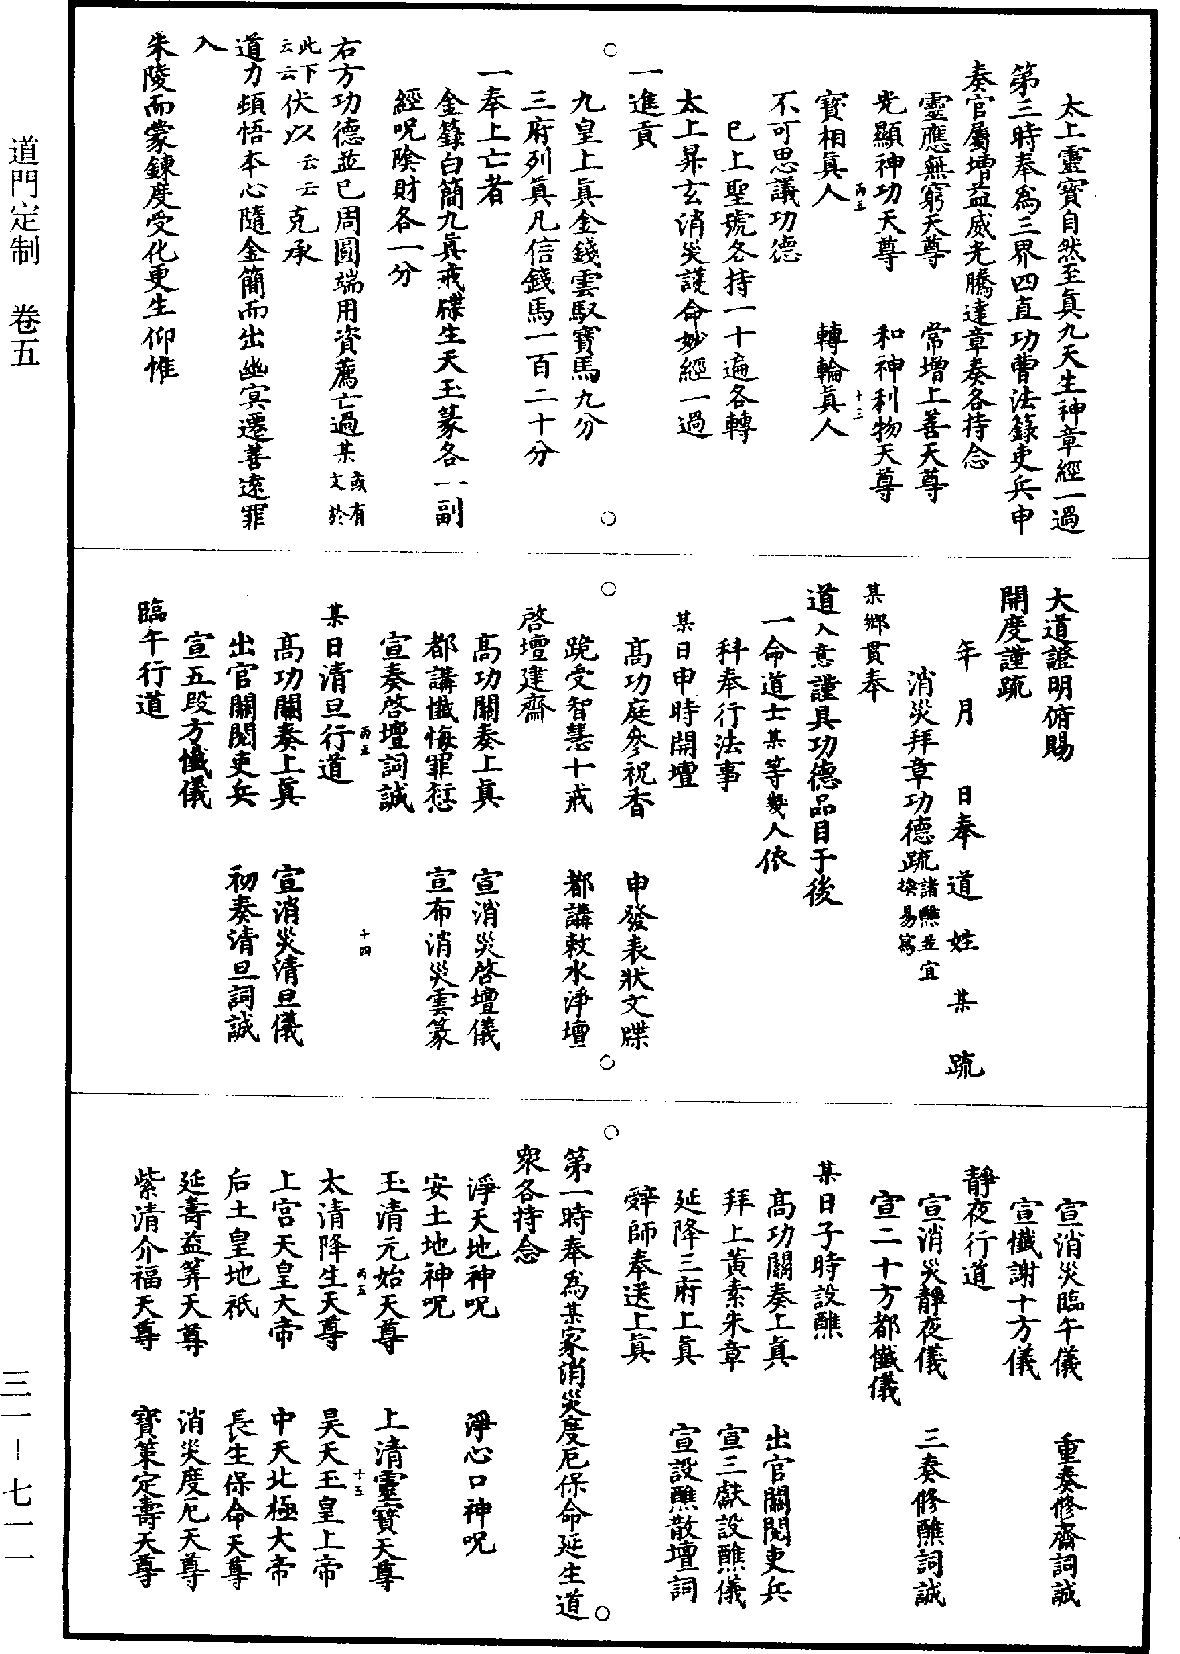 道門定制　卷五
太上靈寶自然至眞九天生神章經一過
第三時奉爲三界四直功曹法籙吏兵申
奏官屬增益威光騰達章奏各持念
靈應無窮天尊　常增上善天尊
光顯神功天尊　和神利物天尊
丙五　十三
寶相眞人　轉輪眞人
不可思議功德
已上聖號各持一十遍各轉
太上昇玄消災護命妙經一過
一進貢
九皇上眞金錢雲馭寶馬九分
三府列眞凡信錢馬一百二十分
一奉上亡者
金籙白簡九眞戒牒生天玉篆各一副
經呪陰財各一分
右方功德並已周圓端用資薦亡過某或有文於
此下云云伏以云云克承
道力頓悟本心隨金簡而出幽冥遷善遠罪
入
朱陵而蒙鍊度受化更生仰惟
大道證明俯賜
開度謹疏
年　月　日奉道姓某疏
消災拜章功德疏諸醮並宜換易寫
某鄉貫奉
道入意謹具功德品目于後
一命道士某等幾人依
科奉行法事
某日申時開壇
高功庭參祝香　申發表狀文牒
跪受智慧十戒　都講敕水淨壇
啓壇建齋
高功關奏上眞　宣消災啓壇儀
都講懺悔罪愆　宣布消災雲篆
宣奏啓壇詞誠
丙五　十四
某日清旦行道
高功關奏上眞　宣消災清旦儀
出官關閱吏兵　初奏清旦詞誠
宣五段方懺儀
臨午行道
宣消災臨午儀　重奏修齋詞誠
宣懺謝十方儀
靜夜行道
宣消災靜夜儀　三奏修醮詞誠
宣二十方都懺儀
某日子時設醮
高功關奏上眞　出官關閱吏兵
拜上黃素朱章　宣三獻設醮儀
延降三府上眞　宣設醮散壇詞
辭師奉送上眞
第一時奉爲某家消災度厄保命延生道
眾各持念
淨天地神呪　淨心口神呪
安土地神呪
玉清元始天尊　上清靈寶天尊
丙五　十五
太清降生天尊　昊天玉皇上帝
上宮天皇大帝　中天北極大帝
后土皇地祇　長生保命天尊
延壽益筭天尊　消災度厄天尊
紫清介福天尊　寶策定壽天尊
三一－七一一